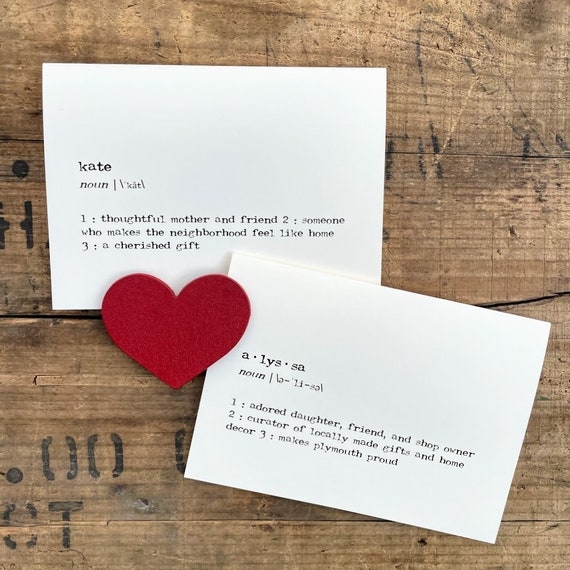 kate
noun | \ˈkāt\
1 : thoughtful mother and friend 2 : someone
who makes the neighborhood feel like home
3 : a cherished gift
a·lys·sa
noun | \ə-ˈli-sə\
1 : adored daughter, friend, and shop owner
2 : curator of locally made gifts and home
decor 3 : makes plymouth proud
.00
CT